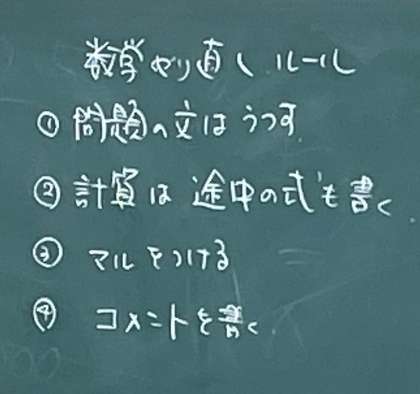 数学やり直しルール
① 問題の文はうつす
② 計算は途中の式も書く
③ マルをつける
④ コメントを書く